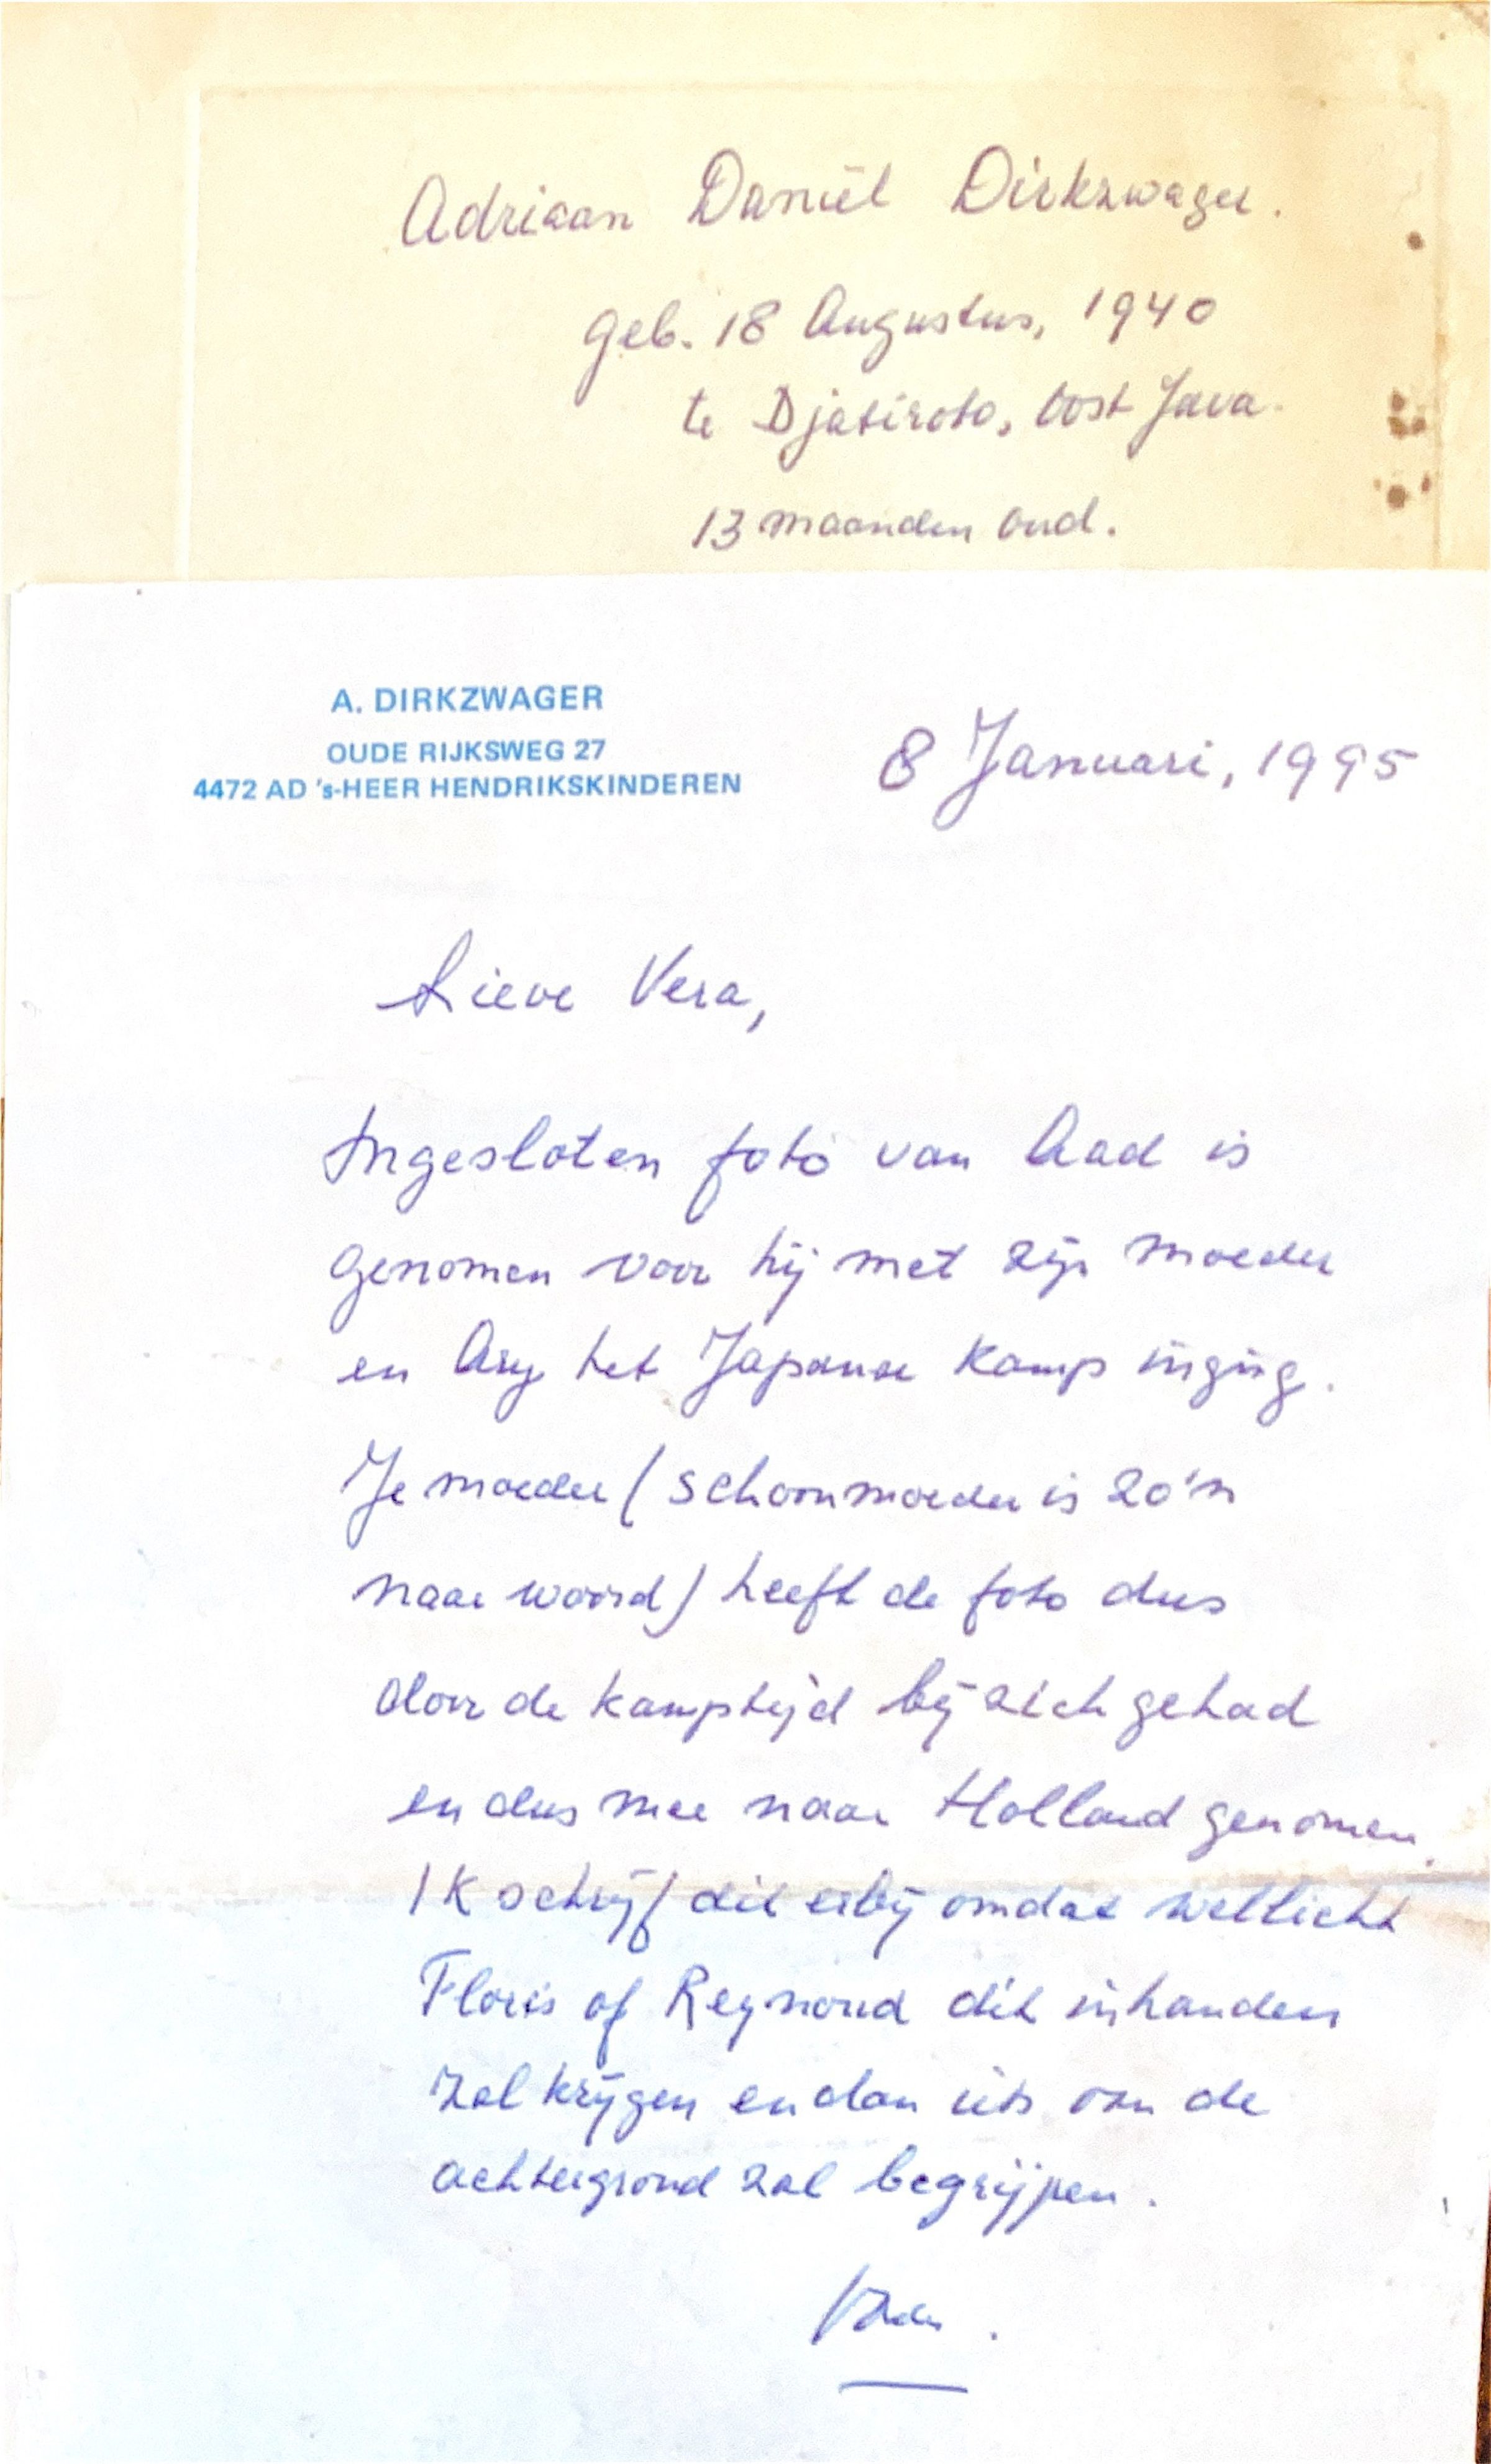 Adriaan Daniël Dirkzwager.
geb. 18 Augustus, 1940
te Djatiroto, Oost Java.
13 maanden oud.
A. DIRKZWAGER
OUDE RIJKSWEG 27
4472 AD 's-HEER HENDRIKSKINDEREN
8 Januari, 1995
Lieve Vera,
Ingesloten foto van Aad is
genomen voor hij met zijn moeder
en Ary het Japanse kamp inging.
Je moeder (schoonmoeder is zo'n
naar woord) heeft de foto dus
door de kamptijd bij zich gehad
en dus mee naar Holland genomen.
Ik schrijf dit erbij omdat wellicht
Floris of Reynoud dit in handen
zal krijgen en dan iets van de
achtergrond zal begrijpen.